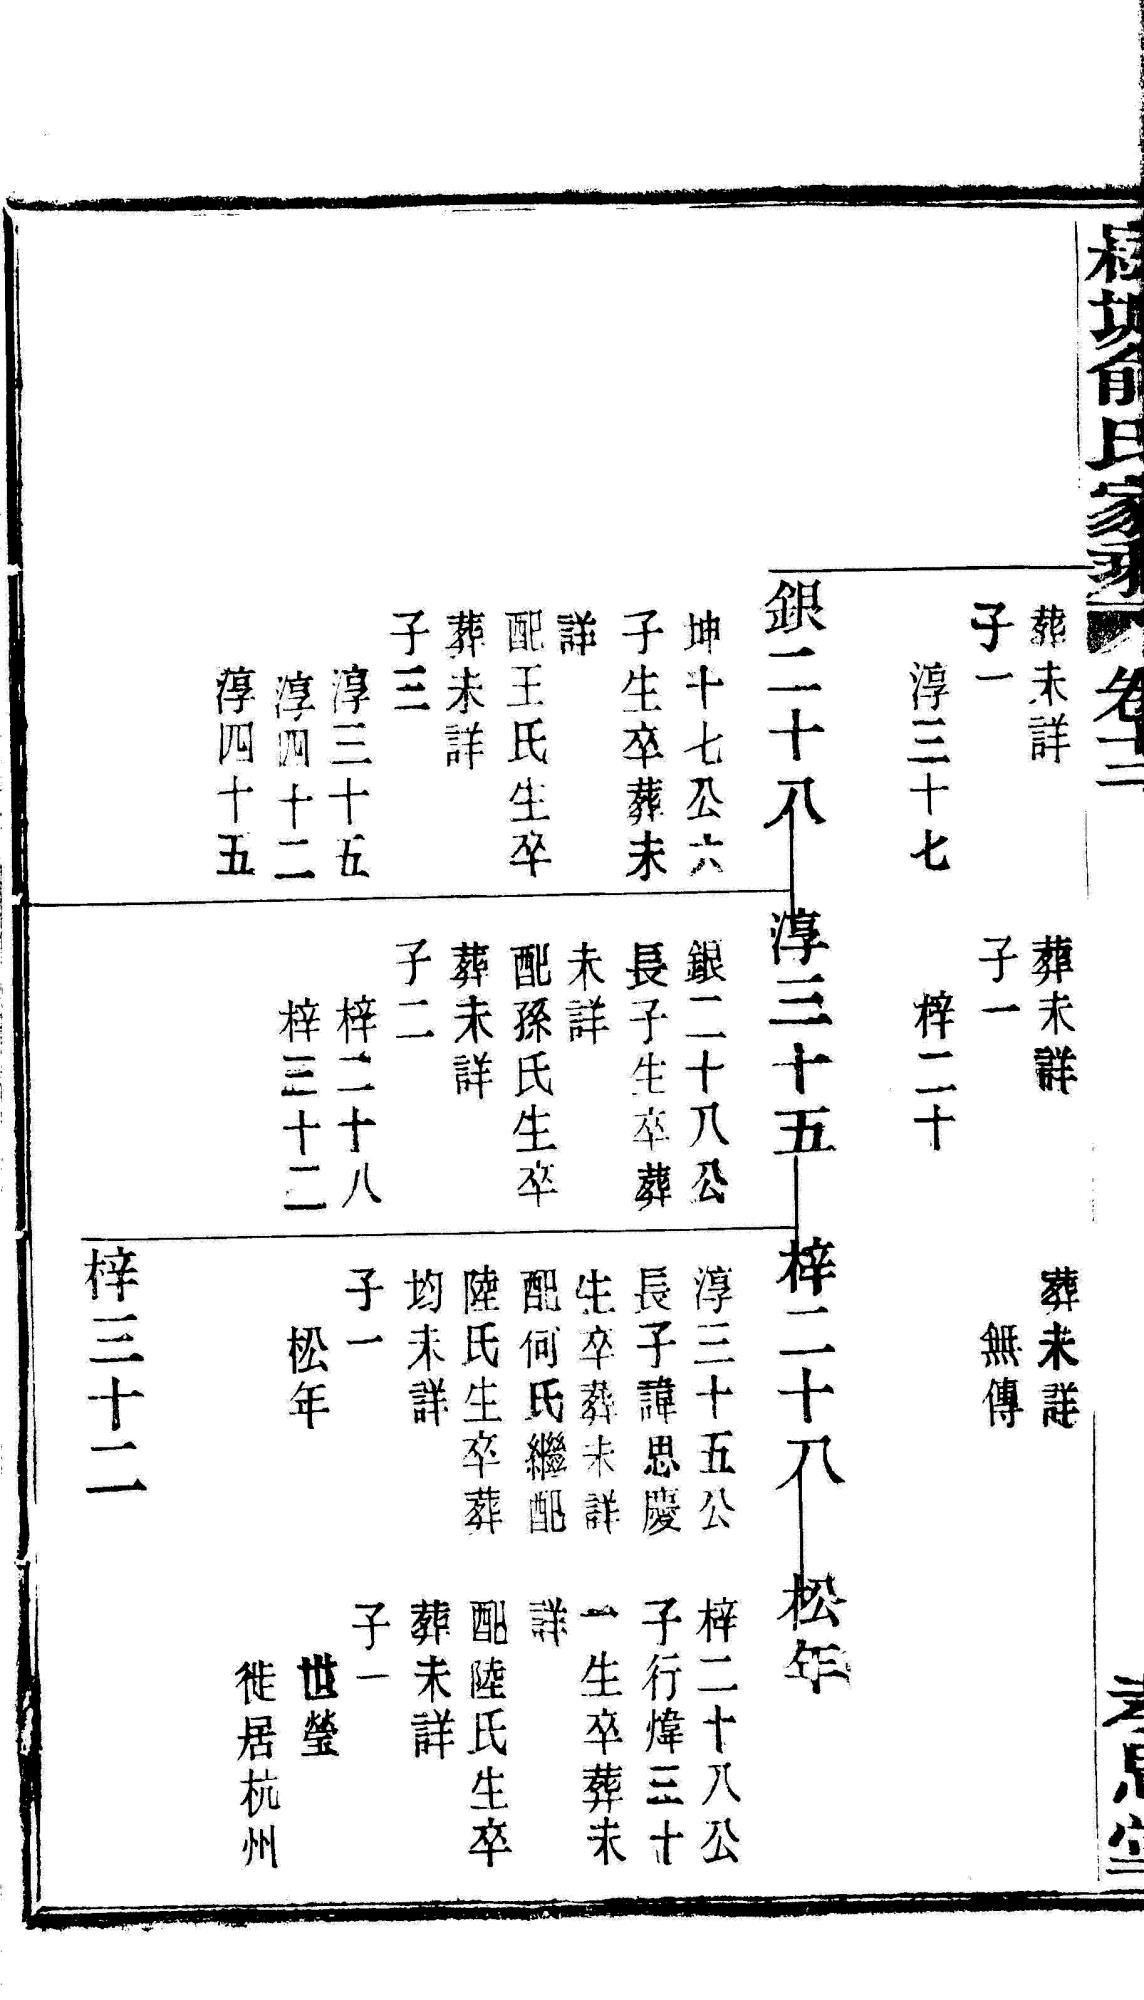 俞氏家乘
卷十二
孝思堂
葬未詳
子一
淳三十七
葬未詳
子一
梓二十
葬未詳
無傳
銀二十八
坤十七公六
子生卒葬未
詳
配王氏生卒
葬未詳
子三
淳三十五
淳四十二
淳四十五
淳三十五
銀二十八公
長子生卒葬
未詳
配孫氏生卒
葬未詳
子二
梓二十八
梓三十二
梓二十八
淳三十五公
長子諱思慶
生卒葬未詳
配何氏繼配
陸氏生卒葬
均未詳
子一
松年
松年
梓二十八公
子行煒三十
一生卒葬未
詳
配陸氏生卒
葬未詳
子一
世瑩
徙居杭州
梓三十二